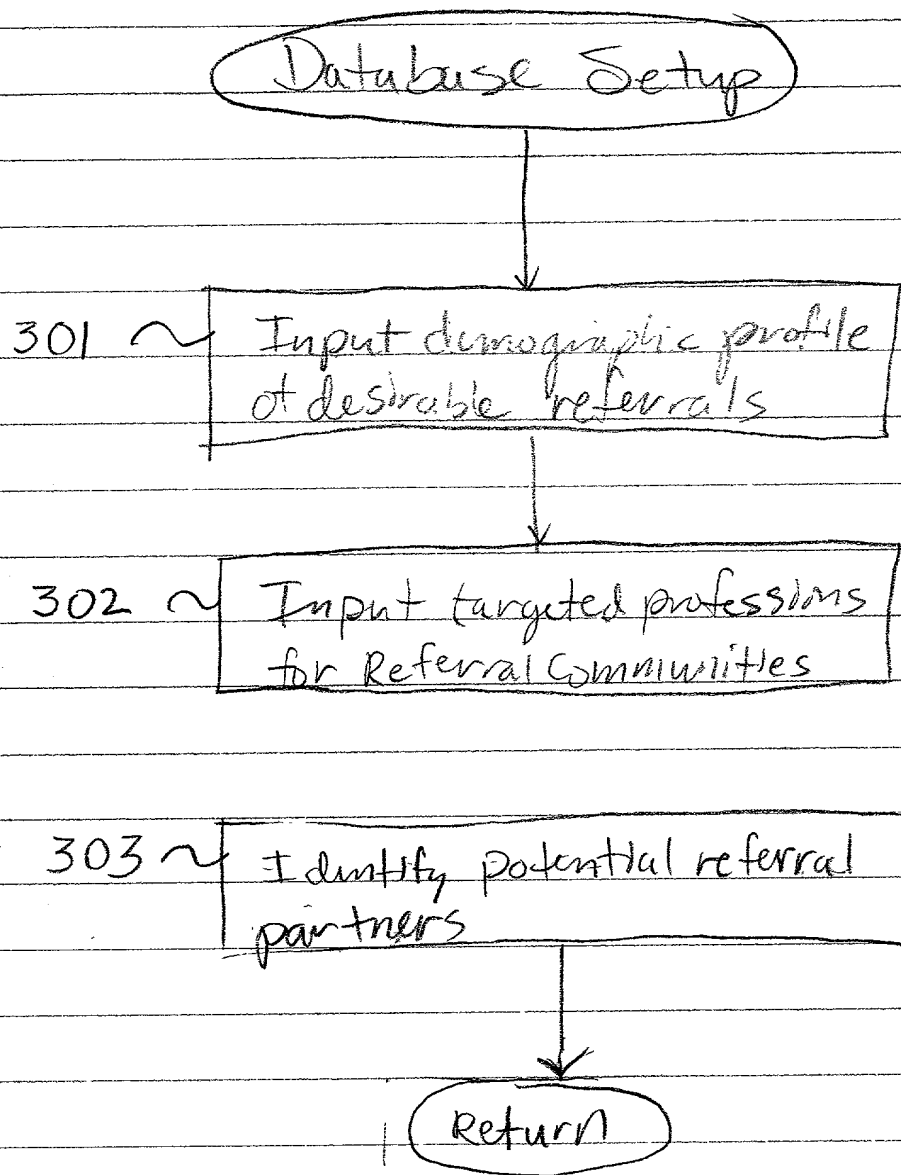 Database Setup
301
Input demographic profile
of desirable referrals
302
Input targeted professions
for Referral Communities
303
Identify potential referral
partners
Return